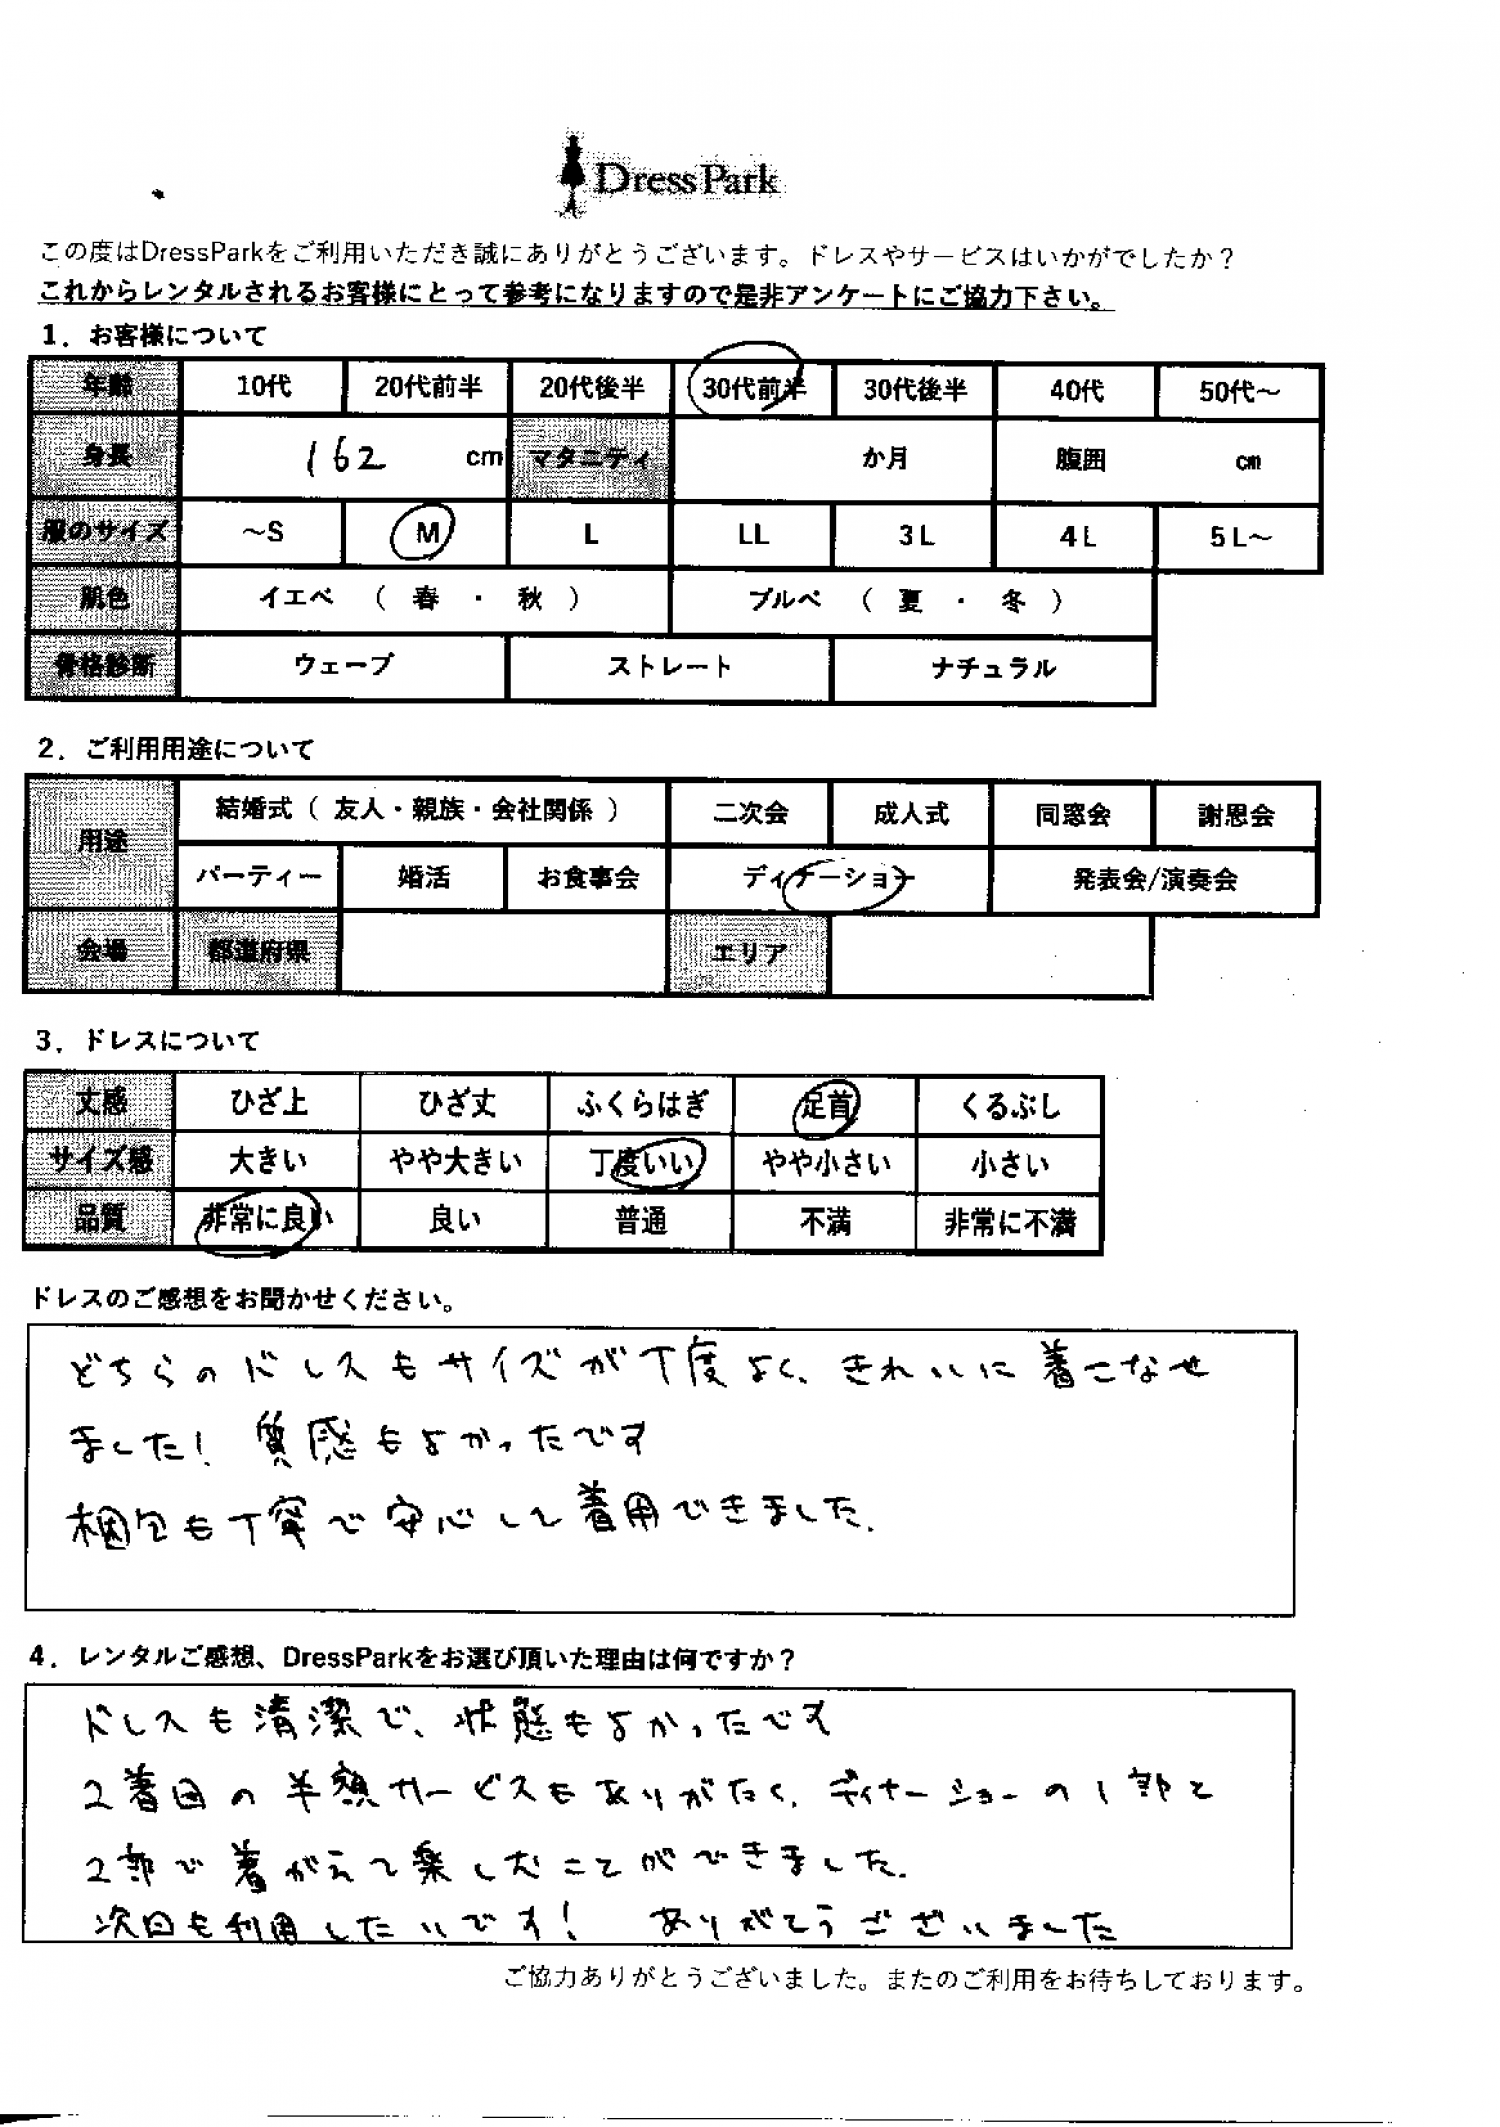 DressPark
この度はDressParkをご利用いただき誠にありがとうございます。ドレスやサービスはいかがでしたか？
これからレンタルされるお客様にとって参考になりますので是非アンケートにご協力下さい。
1．お客様について
年齢 10代 20代前半 20代後半 30代前半 30代後半 40代 50代～
身長 162 cm マタニティ か月 腹囲 cm
服のサイズ ～S M L LL 3L 4L 5L～
肌色 イエベ （ 春 ・ 秋 ） ブルベ （ 夏 ・ 冬 ）
骨格診断 ウェーブ ストレート ナチュラル
2．ご利用用途について
用途 結婚式（ 友人・親族・会社関係 ） 二次会 成人式 同窓会 謝恩会
パーティー 婚活 お食事会 ディナーショー 発表会/演奏会
会場 都道府県 エリア
3．ドレスについて
丈感 ひざ上 ひざ丈 ふくらはぎ 足首 くるぶし
サイズ感 大きい やや大きい 丁度いい やや小さい 小さい
品質 非常に良い 良い 普通 不満 非常に不満
ドレスのご感想をお聞かせください。
どちらのドレスもサイズが丁度よく、きれいに着こなせ
ました! 質感もよかったです
梱包も丁寧で安心して着用できました.
4．レンタルご感想、DressParkをお選び頂いた理由は何ですか？
ドレスも清潔で、状態もよかったです
2着目の半額サービスもありがたく、ディナーショーの1部と
2部で着がえて楽しむことができました.
次回も利用したいです! ありがとうございました
ご協力ありがとうございました。またのご利用をお待ちしております。